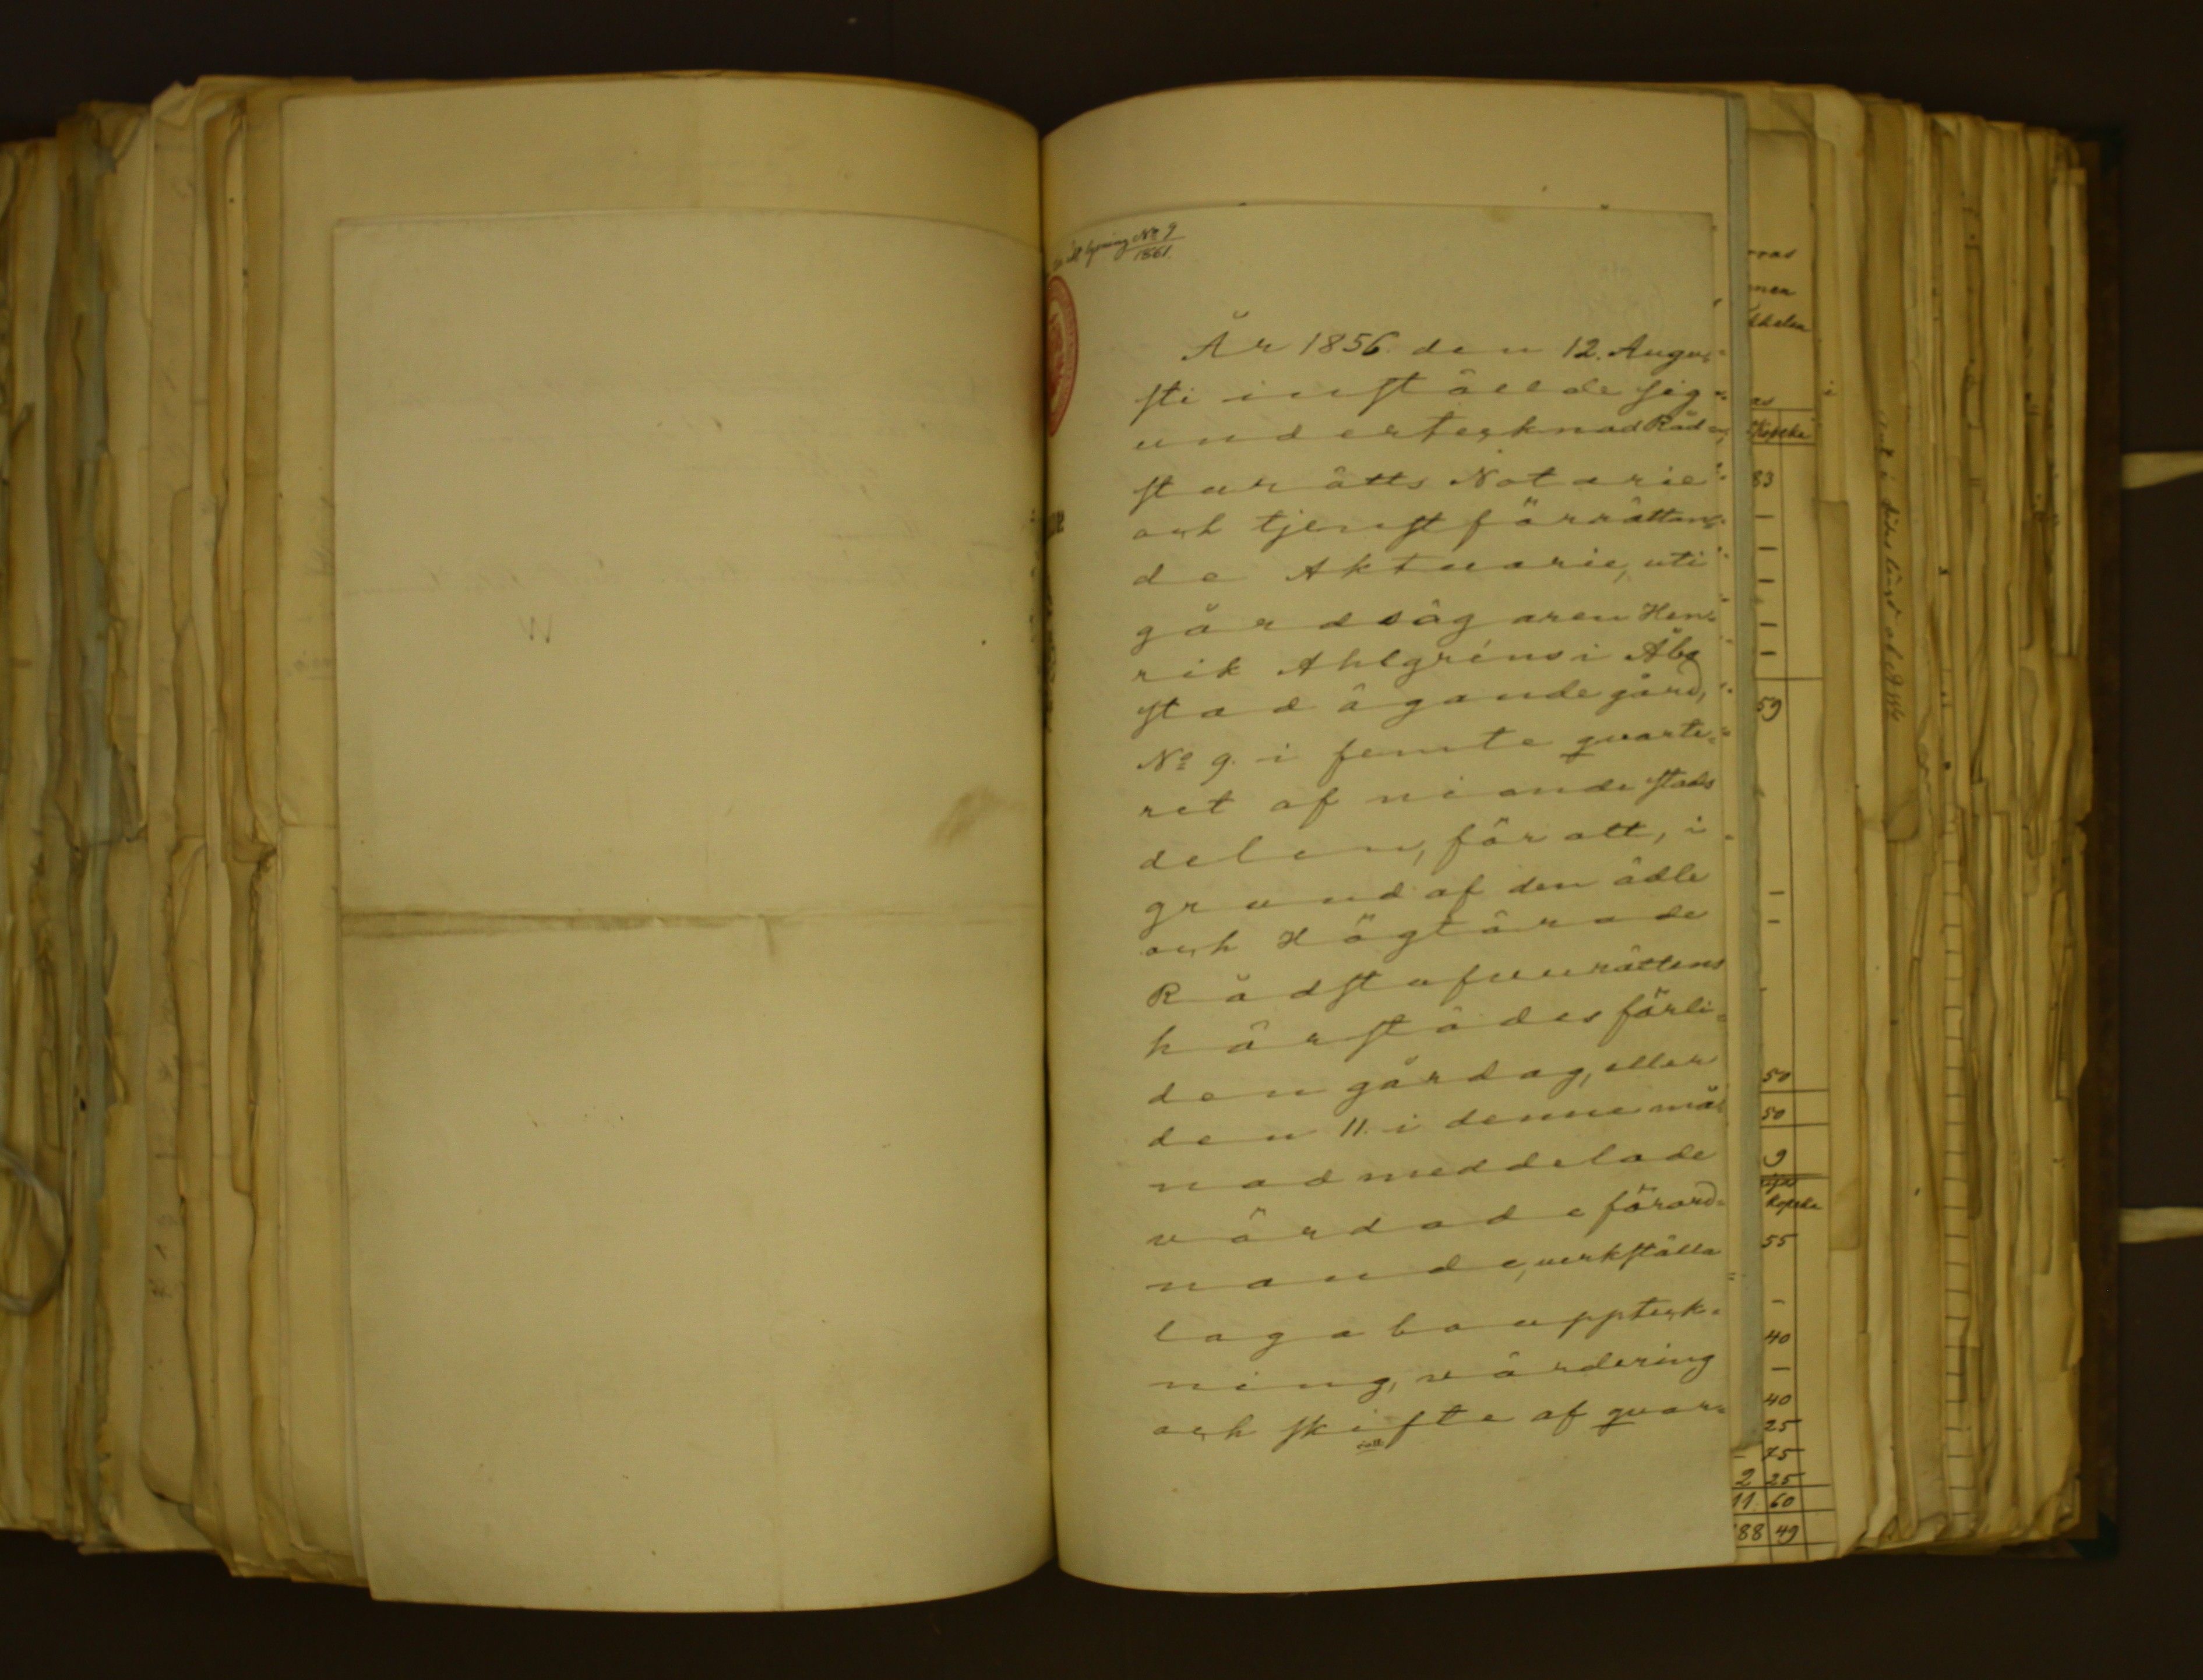 lysning No 9
1861.
År 1856. den 12. Augu-
sti instälde sig
undertecknad Råd-
sturätts Notarie
och tjenstförrättan-
de Aktuarie, uti
gårdsägaren Hen-
rik Ahlgréns i Åbo
stad ägande gård,
No 9. i femte qvarte-
ret af niande stads
delen, för att, i
grund af den ädle
och Högtärade
Rådstufvurättens
härstädes förli-
den gårdag, eller
den 11. i denne må-
nad meddelade
vördade förord-
nande, verkställa
laga bouppteck-
ning, värdering
och skifte af qvar-
rras
Kopeka
83
59
50
50
9
Kopeka
55
40
40
25
75
2 25
11. 60
88 49